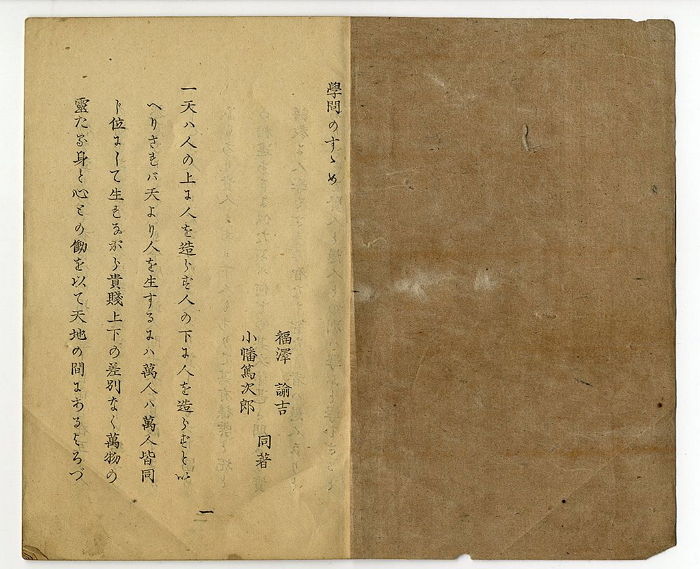 學問のすゝめ
福澤諭吉
小幡篤次郎
同著
一天ハ人の上に人を造らず人の下に人を造らずとい
へりされバ天より人を生ずるにハ萬人ハ萬人皆同
じ位にして生れながら貴賤上下の差別なく萬物の
靈たる身と心との働を以て天地の間にあるよろづ
一